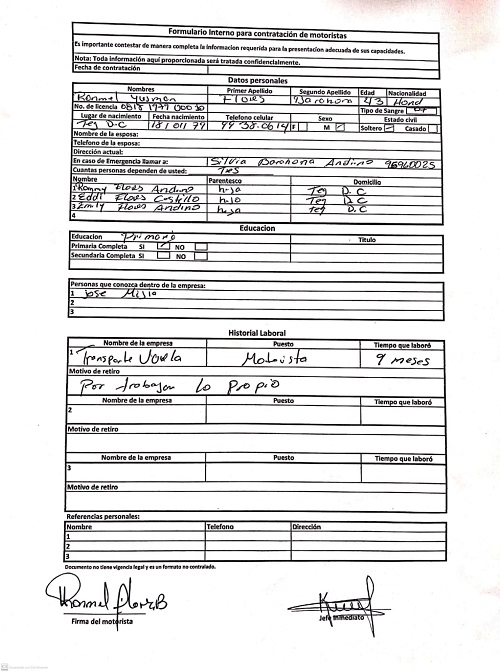 Formulario Interno para contratación de motoristas
Es importante contestar de manera completa la informacion requerida para la presentacion adecuada de sus capacidades.
Nota: Toda información aquí proporcionada será tratada confidencialmente.
Fecha de contratación
Datos personales
Nombres Primer Apellido Segundo Apellido Edad Nacionalidad
Flores Barahona 43 Hond
No. de licencia 0818 1979 000 Tipo de Sangre
Lugar de nacimiento Fecha nacimiento Telefono celular Sexo Estado civil
Teg D.C 18/01/79 9938.0614 F M Soltero Casado
Nombre de la esposa:
Telefono de la esposa:
Dirección actual:
En caso de Emergencia llamar a: Silvia Barahona Andino 96960025
Cuantas personas dependen de usted: Tres
Nombre Parentesco Domicilio
1 Flores Andino hija Teg D.C
2 Eddi Flores Castillo hijo Teg D.C
3 Emily Flores Andino hija Teg D.C
4
Educacion
Educacion Primaria Titulo
Primaria Completa SI NO
Secundaria Completa SI NO
Personas que conozca dentro de la empresa:
1 Jose Mejia
2
3
Historial Laboral
Nombre de la empresa Puesto Tiempo que laboró
1 Transporte Motorista 9 meses
Motivo de retiro
Por trabajar lo propio
Nombre de la empresa Puesto Tiempo que laboró
2
Motivo de retiro
Nombre de la empresa Puesto Tiempo que laboró
3
Motivo de retiro
Referencias personales:
Nombre Telefono Dirección
1
2
3
Documento no tiene vigencia legal y es un formato no contralado.
Firma del motorista Jefe Inmediato